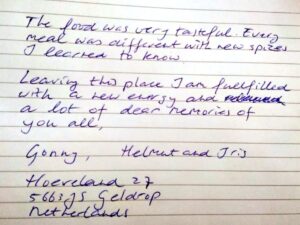 The food was very tasteful. Every
meal was different with new spices
I learned to know.
Leaving this place I am fuelfilled
with a new energy and
a lot of dear memories of
you all,
Gonny, Helmut and Iris
Hoeveland 27
5663JS Geldrop
Netherlands